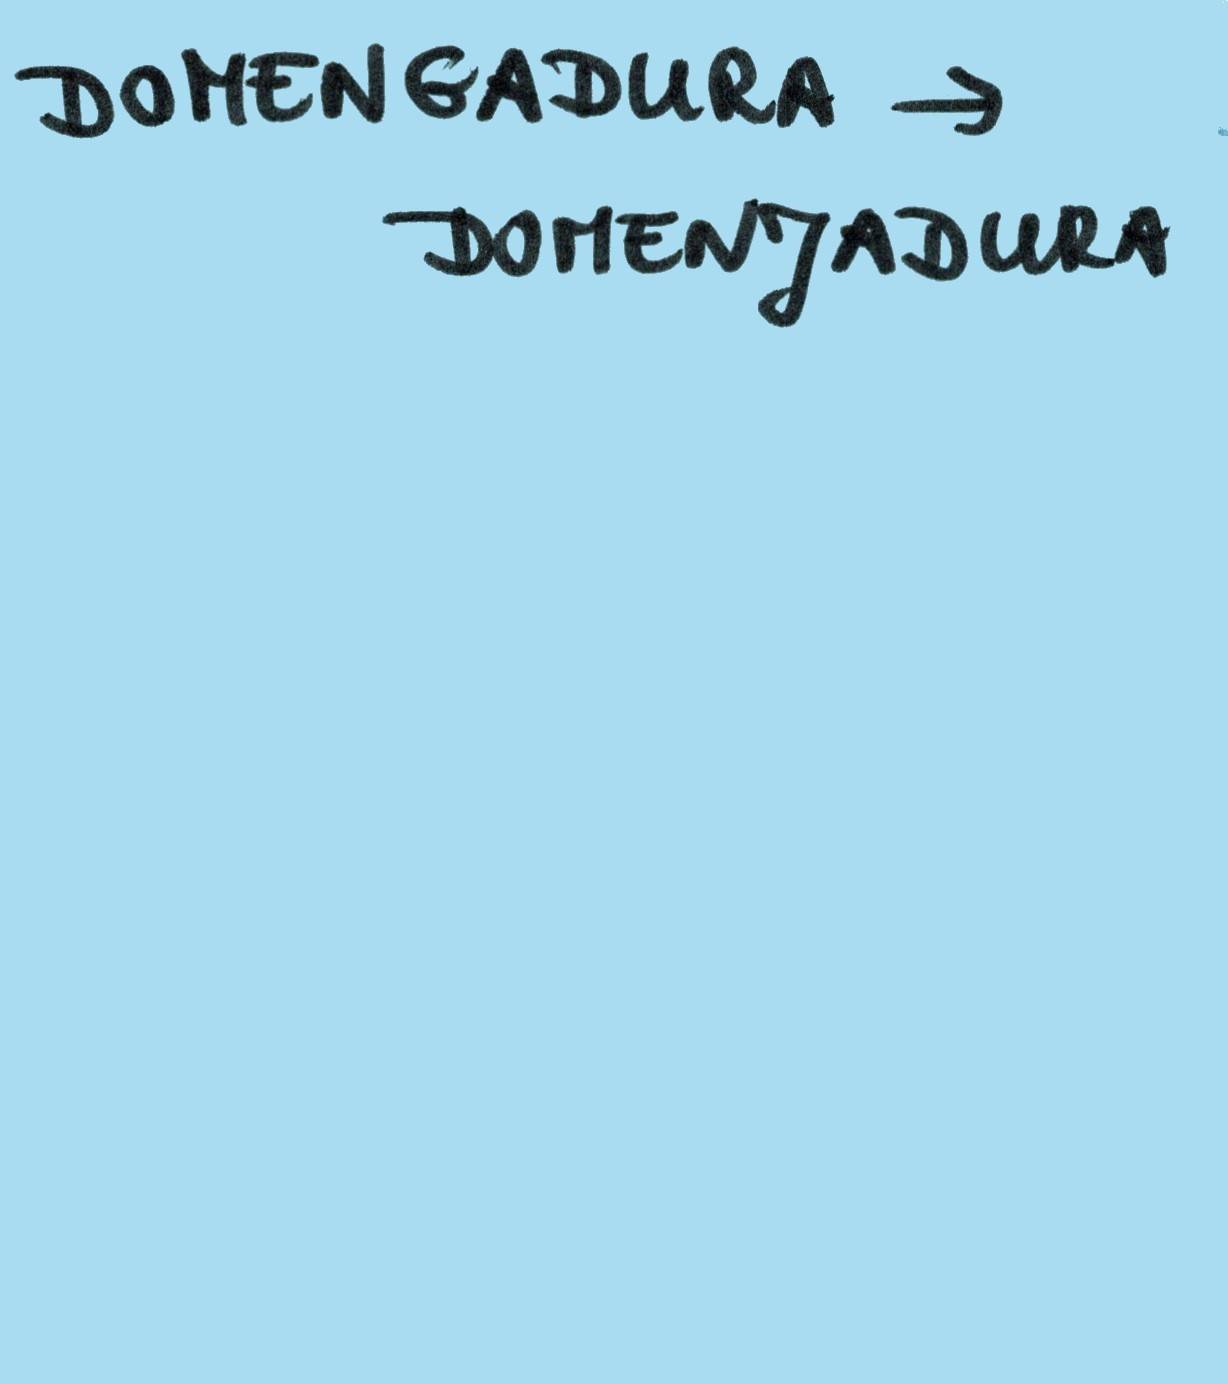 DOMENGADURA →
DOMENJADURA